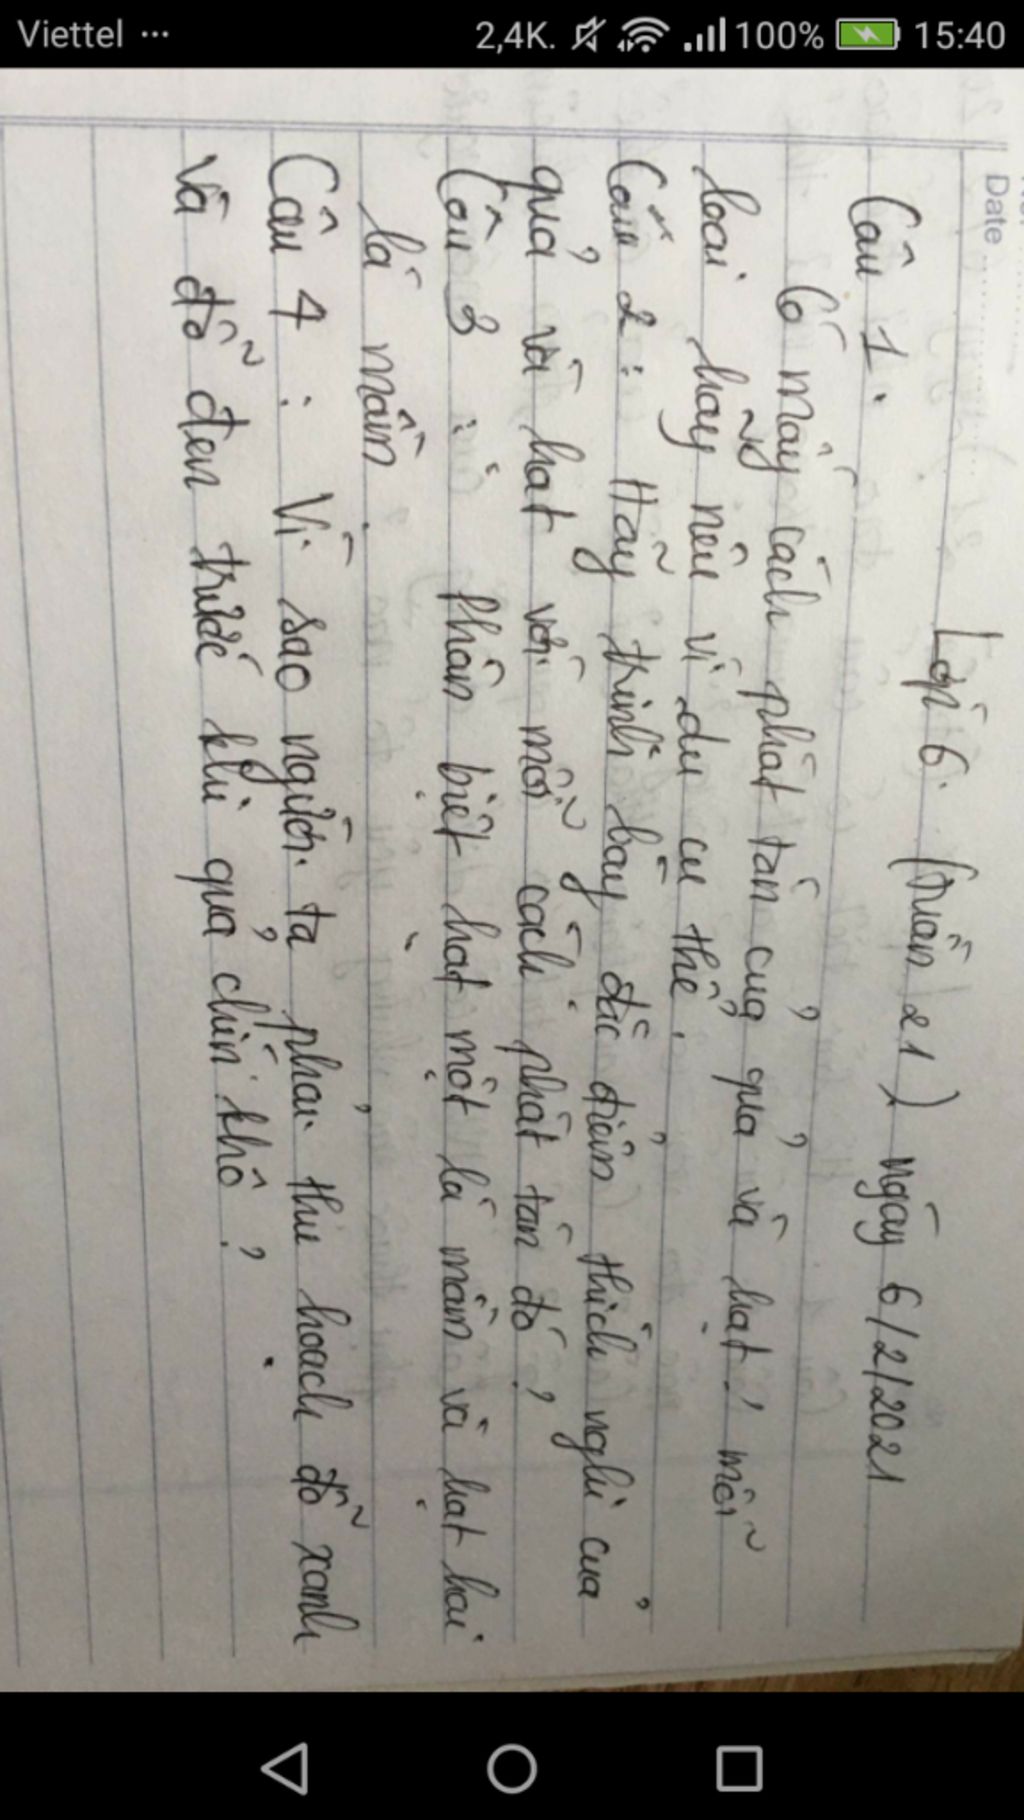 Viettel ... 2,4K. 100% 15:40
Date
Lớp 6. (tuần 21) ngày 6/2/2021
Câu 1.
Có mấy cách phát tán của quả và hạt? mỗi
loại hãy nêu ví dụ cụ thể.
Câu 2: Hãy trình bày đặc điểm thích nghi của
quả và hạt với mỗi cách phát tán đó?
Câu 3: Phân biệt hạt một lá mầm và hạt hai
lá mầm.
Câu 4: Vì sao người ta phải thu hoạch đỗ xanh
và đỗ đen trước khi quả chín khô?